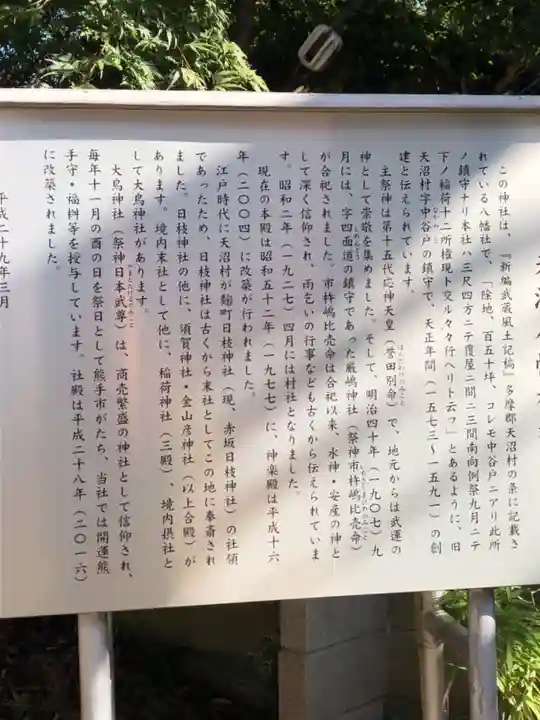 天沼八幡神社
この神社は、『新編武蔵風土記稿』多摩郡天沼村の条に記載さ
れている八幡社で、「除地、百五十坪、コレモ中谷戸ニアリ此所
ノ鎮守ナリ本社ハ三尺四方ニテ覆屋二間ニ三間南向例祭九月ニテ
下ノ稲荷十二所権現ト交ル々々行ヘリト云つ」とあるように、旧
天沼村字中谷戸の鎮守で、天正年間（一五七三～一五九一）の創
建と伝えられています。
主祭神は第十五代応神天皇（誉田別命）で、地元からは武運の
ほんだわけのみこと
神として崇敬を集めました。そして、明治四十年（一九〇七）九
月には、字四面道の鎮守であった厳嶋神社（祭神市杵嶋比売命）
しめんどう
が合祀されました。市杵嶋比売命は合祀以来、水神・安産の神と
して深く信仰され、雨乞いの行事なども古くから伝えられていま
す。昭和二年（一九二七）四月には村社となりました。
現在の本殿は昭和五十二年（一九七七）に、神楽殿は平成十六
年（二〇〇四）に改築が行われました。
江戸時代に天沼村が麹町日枝神社（現、赤坂日枝神社）の社領
であったため、日枝神社は古くから末社としてこの地に奉斎され
ました。日枝神社の他に、須賀神社・金山彦神社（以上合殿）が
あります。境内末社として他に、稲荷神社（三殿）、境内摂社と
して大鳥神社があります。
大鳥神社（祭神日本武尊）は、商売繁盛の神社として信仰され、
やまとたけるのみこと
毎年十一月の酉の日を祭日として熊手市がたち、当社では開運熊
手守・福桝等を授与しています。社殿は平成二十八年（二〇一六）
に改築されました。
平成二十九年三月